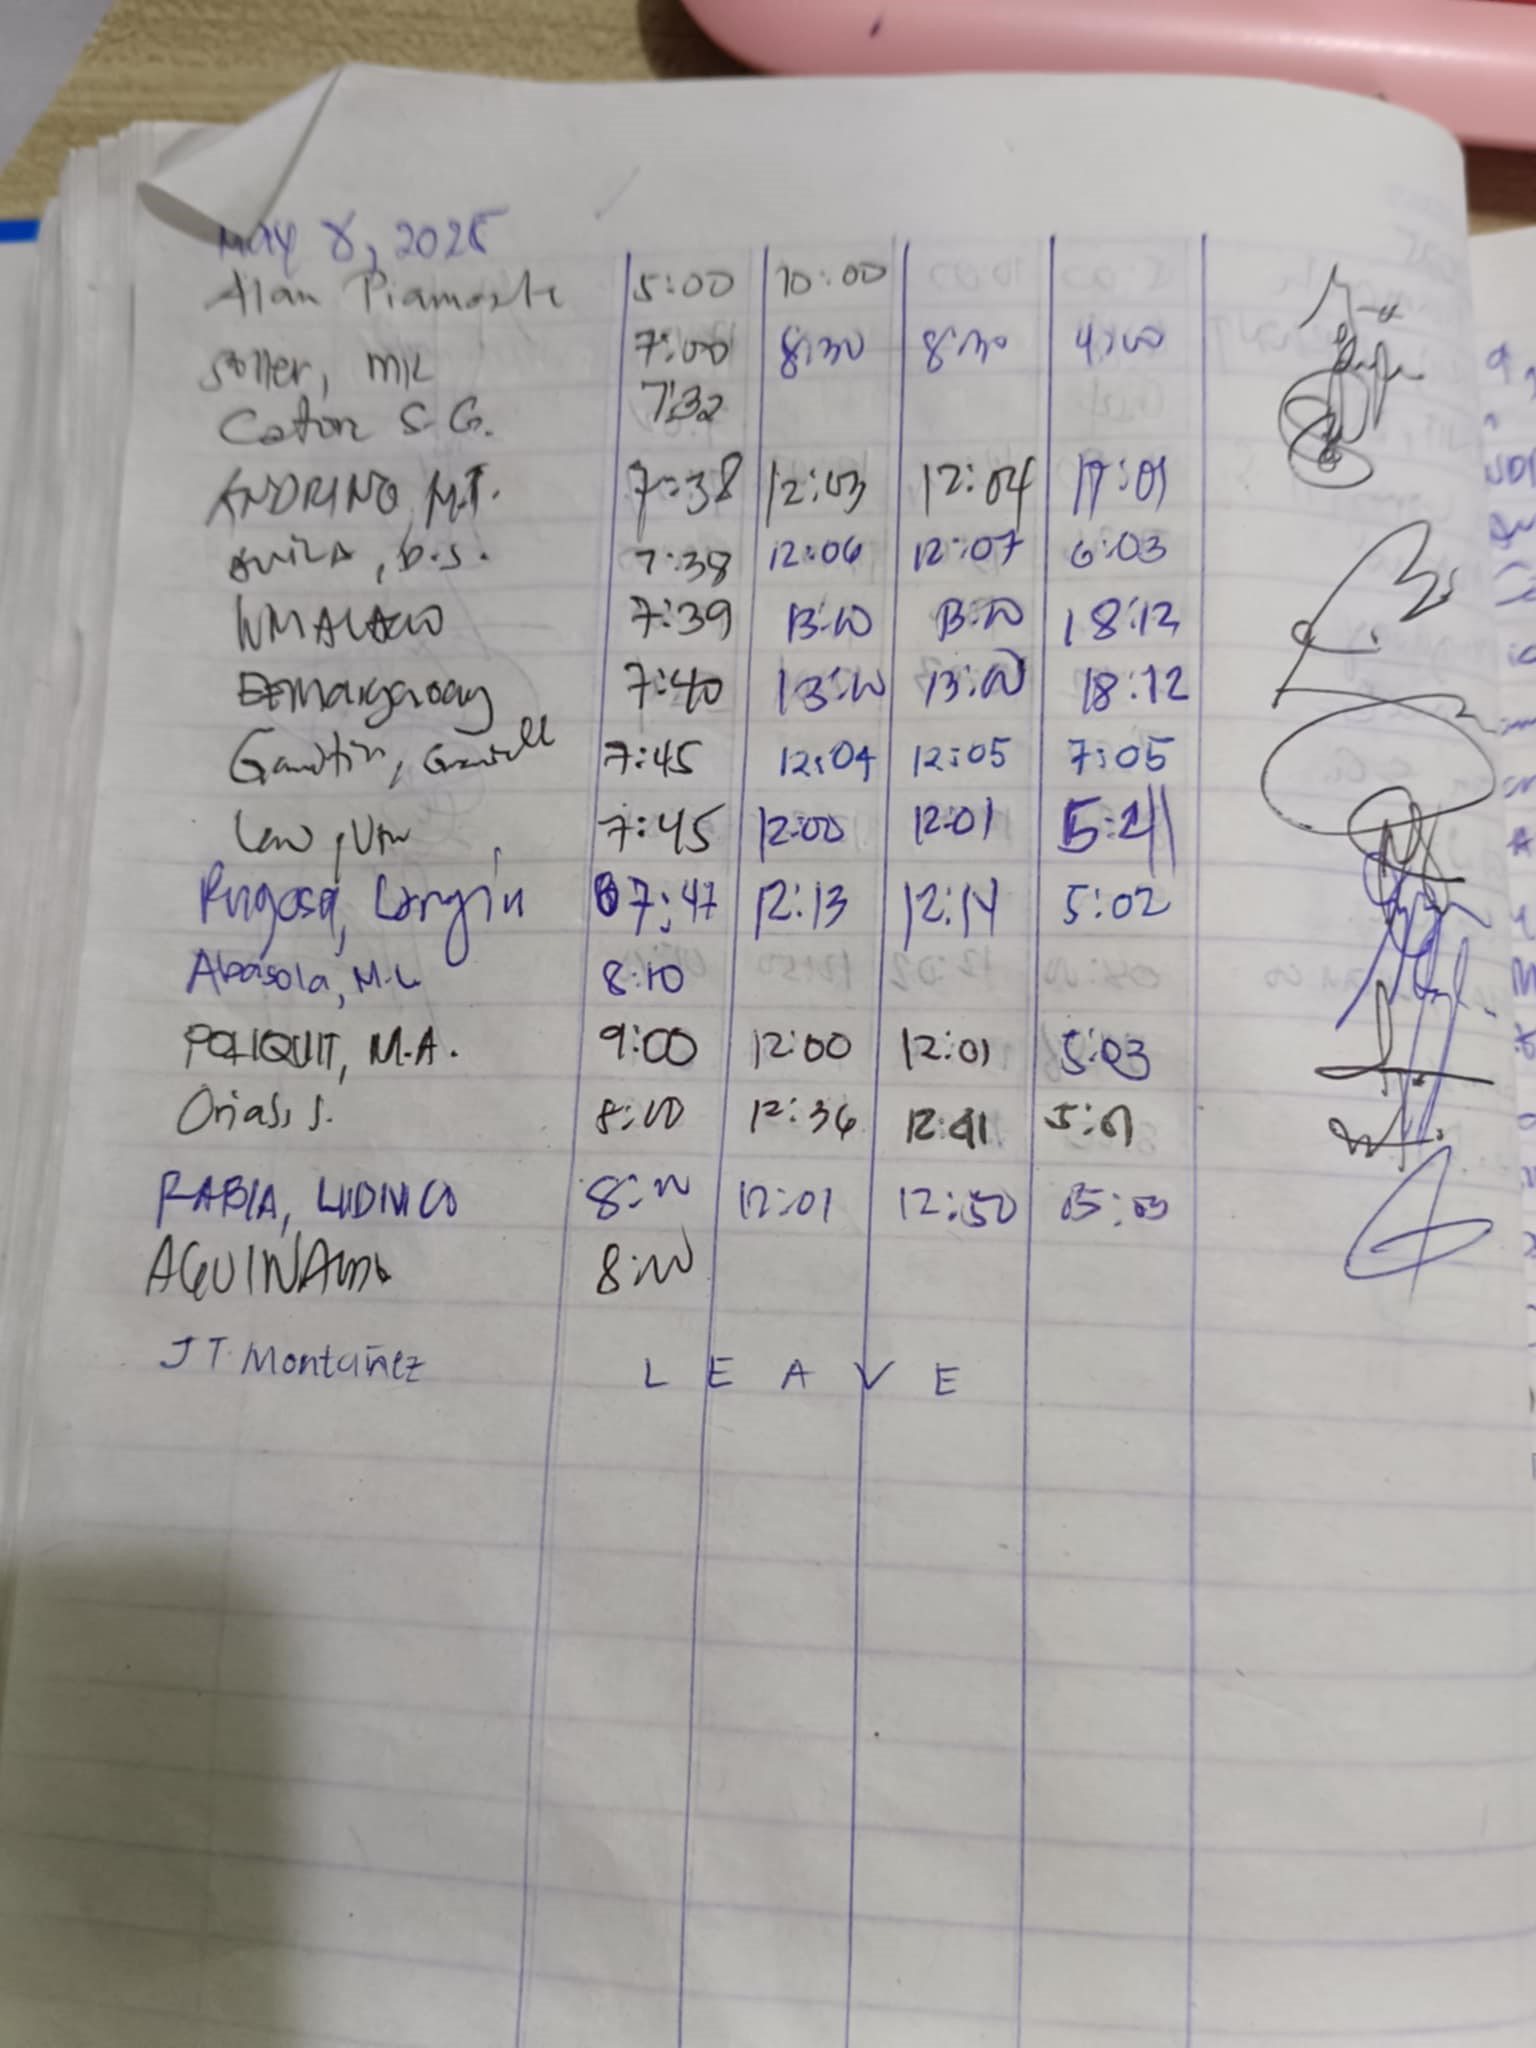 May 8, 2025
Alan 5:00 10:00
Soller, ML 7:00 8:30 8:30 4:00
Caton S.G. 7:32
ANDRINO, M.T. 7:38 12:03 12:04 17:01
AVILA, D.S. 7:38 12:06 12:07 6:03
7:39 13:10 13:10 18:12
7:40 13:10 13:10 18:12
7:45 12:04 12:05 7:05
7:45 12:00 12:01
Rugosa, Longin 07:47 12:13 12:14 5:02
Abasola, M.L 8:10
POLIQUIT, M.A. 9:00 12:00 12:01 5:03
Orias, S. 8:00 12:36 12:41 5:01
RABIA, LUDIVICO 8:00 12:01 12:50 05:03
8:00
J T Montañez L E A V E